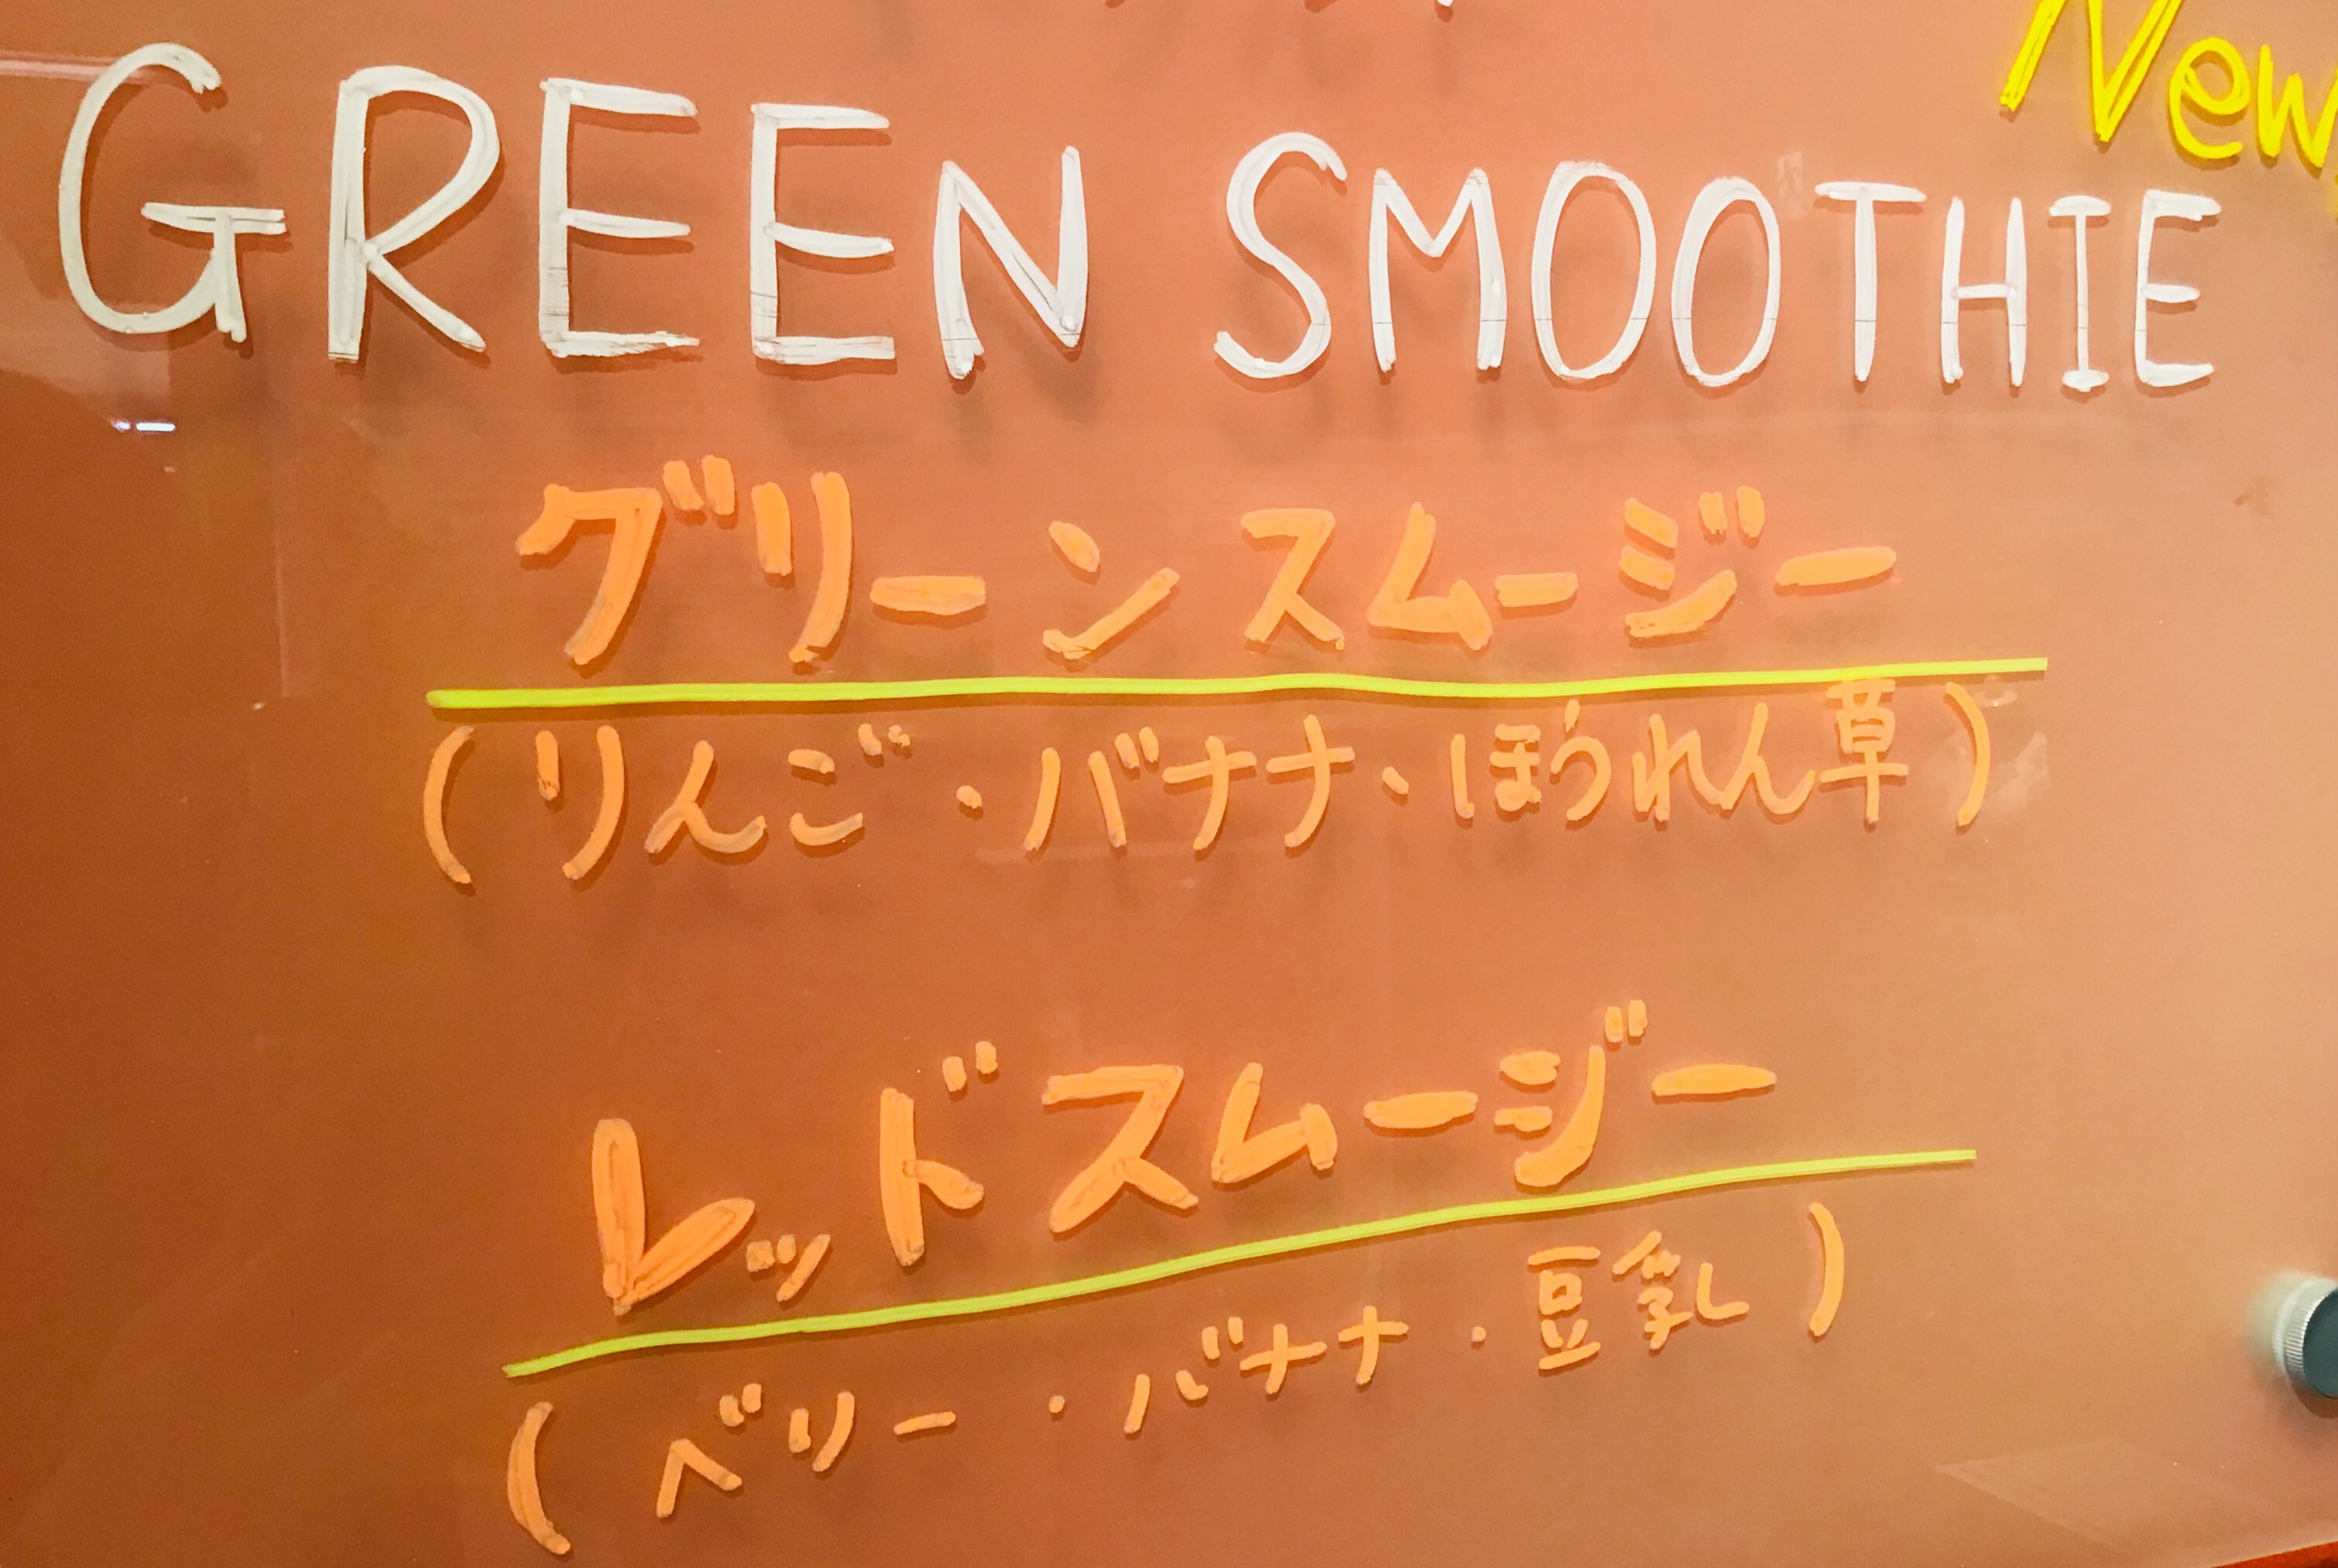 New
GREEN SMOOTHIE
グリーン スムージー
(りんご・バナナ、ほうれん草)
レッドスムージー
(ベリー・バナナ・豆乳)